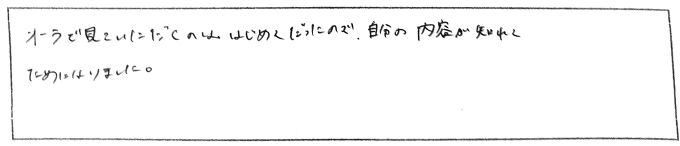 オーラで見ていただくのははじめてだったので、自分の内容が知れて
ためになりました。